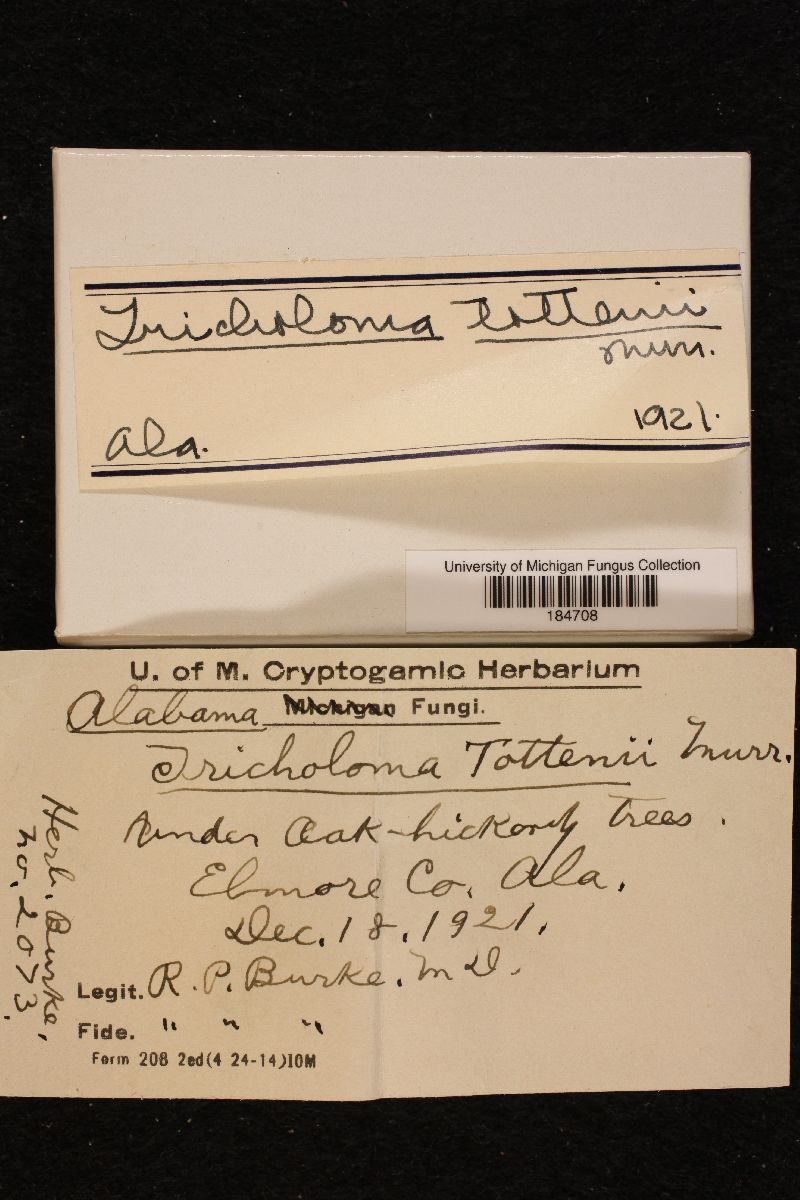 Tricholoma tottenii
Murr.
Ala.
1921.
University of Michigan Fungus Collection
184708
U. of M. Cryptogamic Herbarium
Alabama Michigan Fungi.
Tricholoma Tottenii Murr.
Under Oak-hickory trees.
Elmore Co. Ala.
Dec. 18, 1921.
Legit. R. P. Burke. M D.
Fide. " " "
Form 208 2ed(4 24-14)10M
Herb. Burke,
no. 2073.